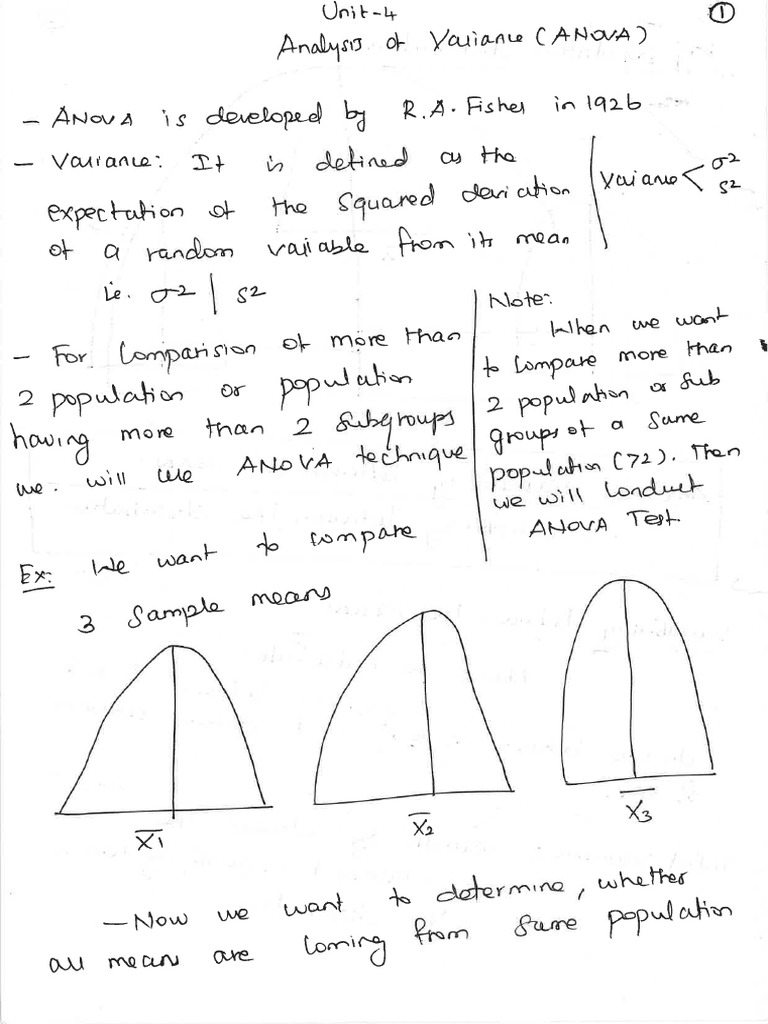 Unit-4
①
Analysis of Variance (ANOVA)
- ANOVA is developed by R.A. Fisher in 1926
- Variance: It is defined as the
expectation of the squared deviation
of a random variable from its mean
ie. σ2 | s2
Variance < σ2
s2
- For Comparision of more than
2 population or population
having more than 2 subgroups
we. will use ANOVA technique
Note:
When we want
to compare more than
2 population or sub
groups of a same
population (>2). Then
we will conduct
ANOVA Test.
Ex: We want to compare
3 sample means
X̅1
X̅2
X̅3
- Now we want to determine, whether
all means are coming from same population